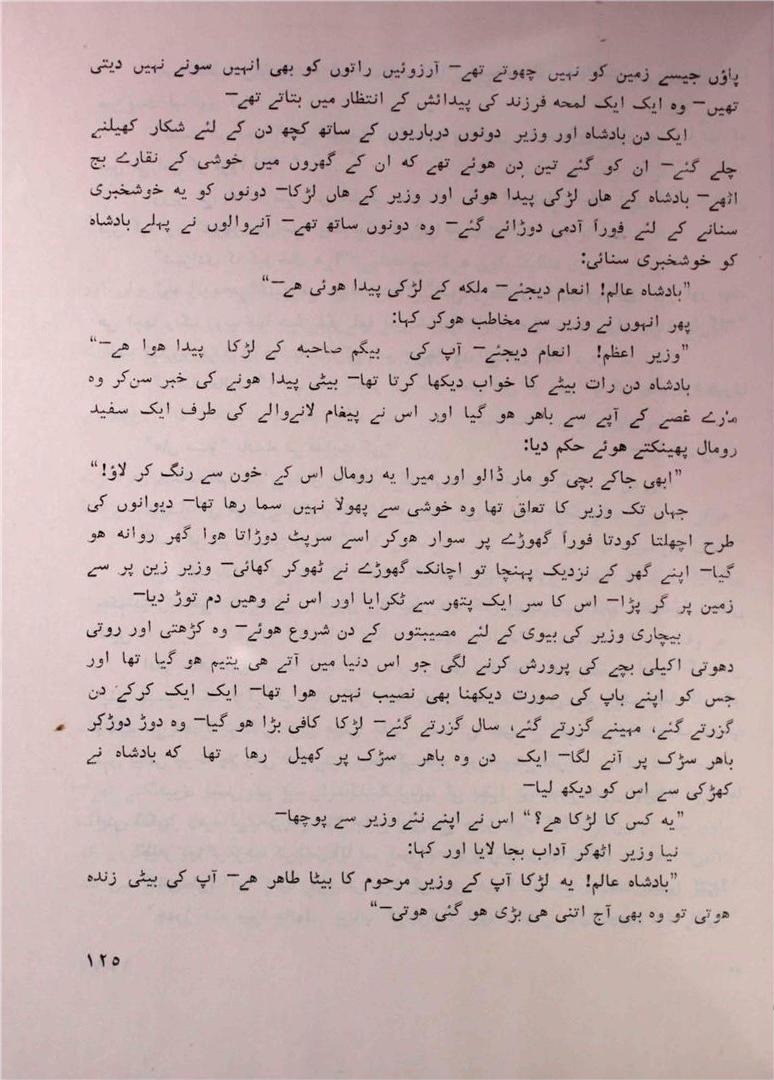 پاؤں جیسے زمین کو نہیں چھوتے تھے— آرزوئیں راتوں کو بھی انہیں سونے نہیں دیتی
تھیں— وہ ایک ایک لمحہ فرزند کی پیدائش کے انتظار میں بتاتے تھے—
ایک دن بادشاہ اور وزیر دونوں درباریوں کے ساتھ کچھ دن کے لئے شکار کھیلنے
چلے گئے— ان کو گئے تین دن ہوئے تھے کہ ان کے گھروں میں خوشی کے نقارے بج
اٹھے— بادشاہ کے ہاں لڑکی پیدا ہوئی اور وزیر کے ہاں لڑکا— دونوں کو یہ خوشخبری
سنانے کے لئے فوراً آدمی دوڑائے گئے— وہ دونوں ساتھ تھے— آنےوالوں نے پہلے بادشاہ
کو خوشخبری سنائی:
”بادشاہ عالم! انعام دیجئے— ملکہ کے لڑکی پیدا ہوئی ہے—“
پھر انہوں نے وزیر سے مخاطب ہوکر کہا:
”وزیر اعظم! انعام دیجئے— آپ کی بیگم صاحبہ کے لڑکا پیدا ہوا ہے—“
بادشاہ دن رات بیٹے کا خواب دیکھا کرتا تھا— بیٹی پیدا ہونے کی خبر سن‌کر وہ
مارے غصے کے آپے سے باہر ہو گیا اور اس نے پیغام لانےوالے کی طرف ایک سفید
رومال پھینکتے ہوئے حکم دیا:
”ابھی جاکے بچی کو مار ڈالو اور میرا یہ رومال اس کے خون سے رنگ کر لاؤ!“
جہاں تک وزیر کا تعلق تھا وہ خوشی سے پھولا نہیں سما رہا تھا— دیوانوں کی
طرح اچھلتا کودتا فوراً گھوڑے پر سوار ہوکر اسے سرپٹ دوڑاتا ہوا گھر روانہ ہو
گیا— اپنے گھر کے نزدیک پہنچا تو اچانک گھوڑے نے ٹھوکر کھائی— وزیر زین پر سے
زمین پر گر پڑا— اس کا سر ایک پتھر سے ٹکرایا اور اس نے وہیں دم توڑ دیا—
بیچاری وزیر کی بیوی کے لئے مصیبتوں کے دن شروع ہوئے— وہ کڑھتی اور روتی
دھوتی اکیلی بچے کی پرورش کرنے لگی جو اس دنیا میں آتے ہی یتیم ہو گیا تھا اور
جس کو اپنے باپ کی صورت دیکھنا بھی نصیب نہیں ہوا تھا— ایک ایک کرکے دن
گزرتے گئے، مہینے گزرتے گئے، سال گزرتے گئے— لڑکا کافی بڑا ہو گیا— وہ دوڑ دوڑکر
باہر سڑک پر آنے لگا— ایک دن وہ باہر سڑک پر کھیل رہا تھا کہ بادشاہ نے
کھڑکی سے اس کو دیکھ لیا—
”یہ کس کا لڑکا ہے؟“ اس نے اپنے نئے وزیر سے پوچھا—
نیا وزیر اٹھ‌کر آداب بجا لایا اور کہا:
”بادشاہ عالم! یہ لڑکا آپ کے وزیر مرحوم کا بیٹا طاہر ہے— آپ کی بیٹی زندہ
ہوتی تو وہ بھی آج اتنی ہی بڑی ہو گئی ہوتی—“
۱۲۵